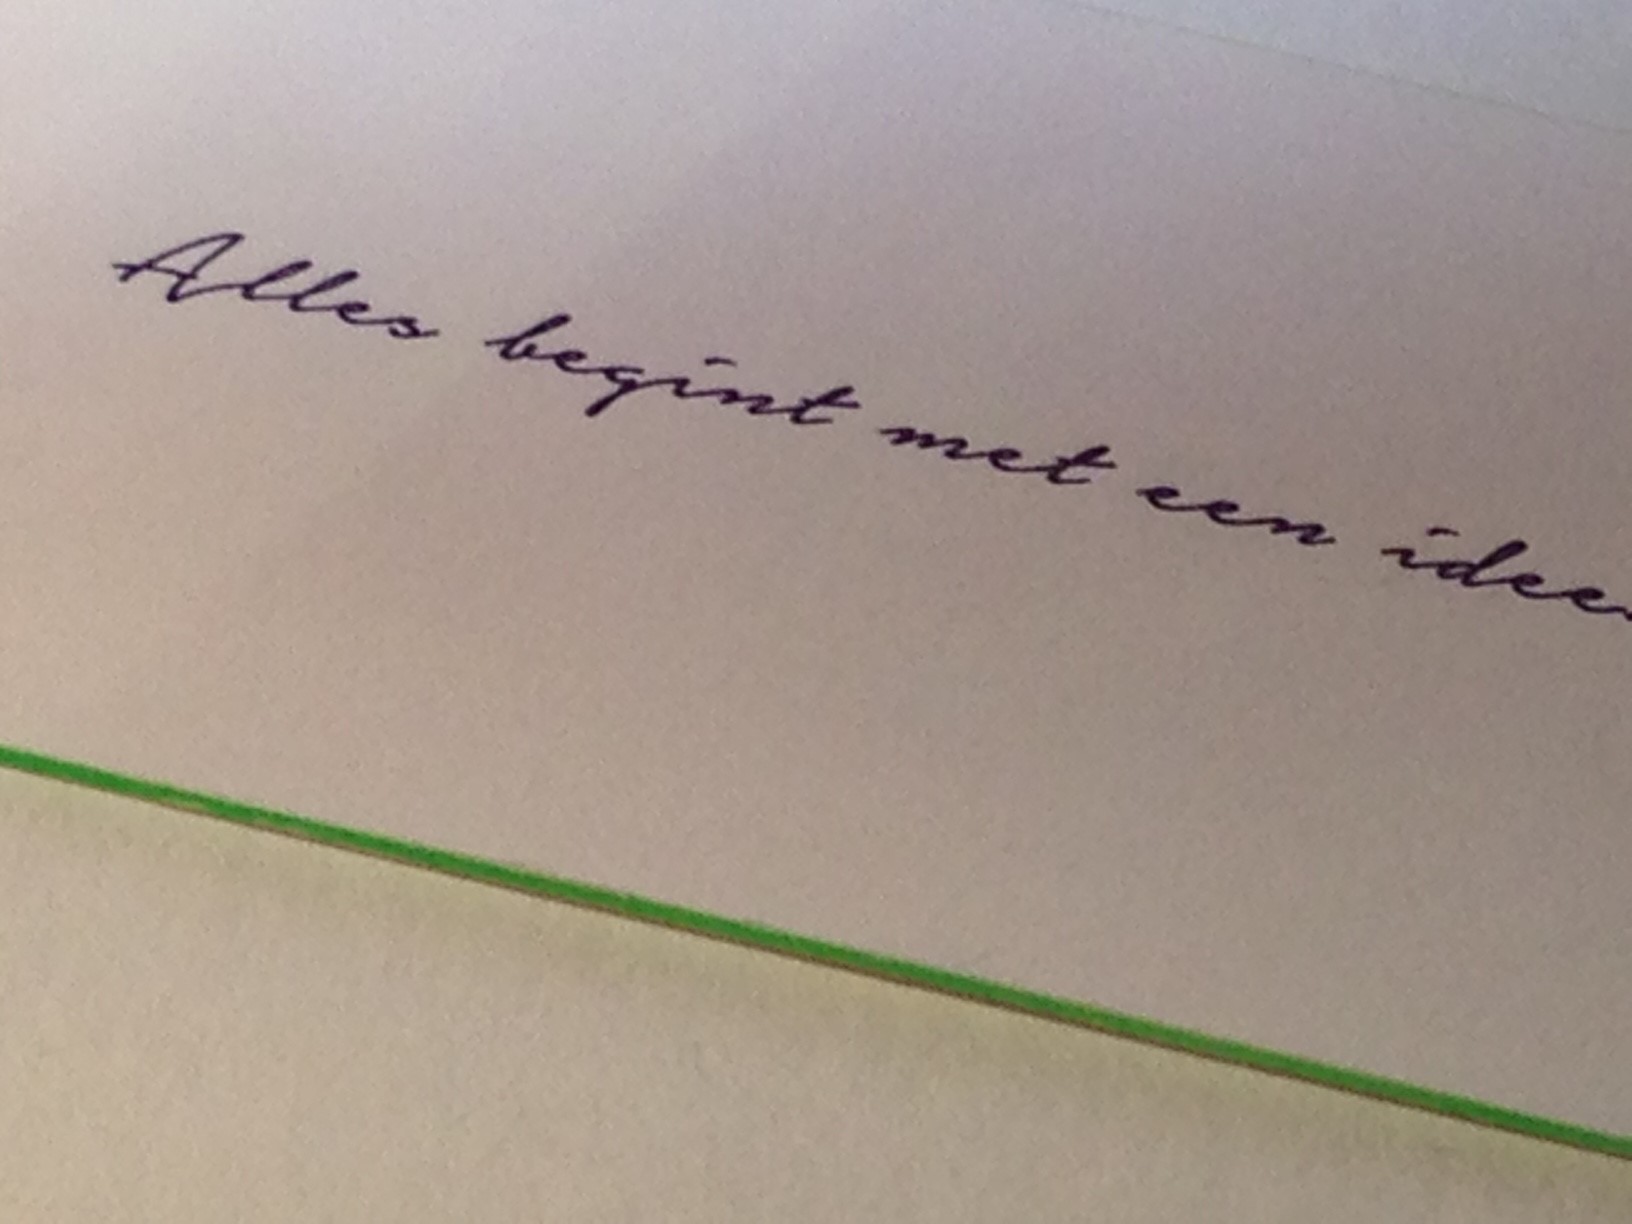 Alles begint met een idee